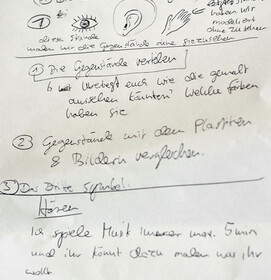 ①
diese Stunde
malen wir die Gegenstände ohne sie zu sehen
haben wir
modelliert
ohne zu sehen
① Die Gegenstände verteilen
↳ überlegt euch wie die gemalt
aussehen könnten? Welche Farben
haben sie
② Gegenstände mit den Plastiken
& Bildern vergleichen.
③ Das dritte Symbol:
Hören
Ich spiele Musik immer max. 5 min
und ihr könnt dazu malen was ihr
wollt.